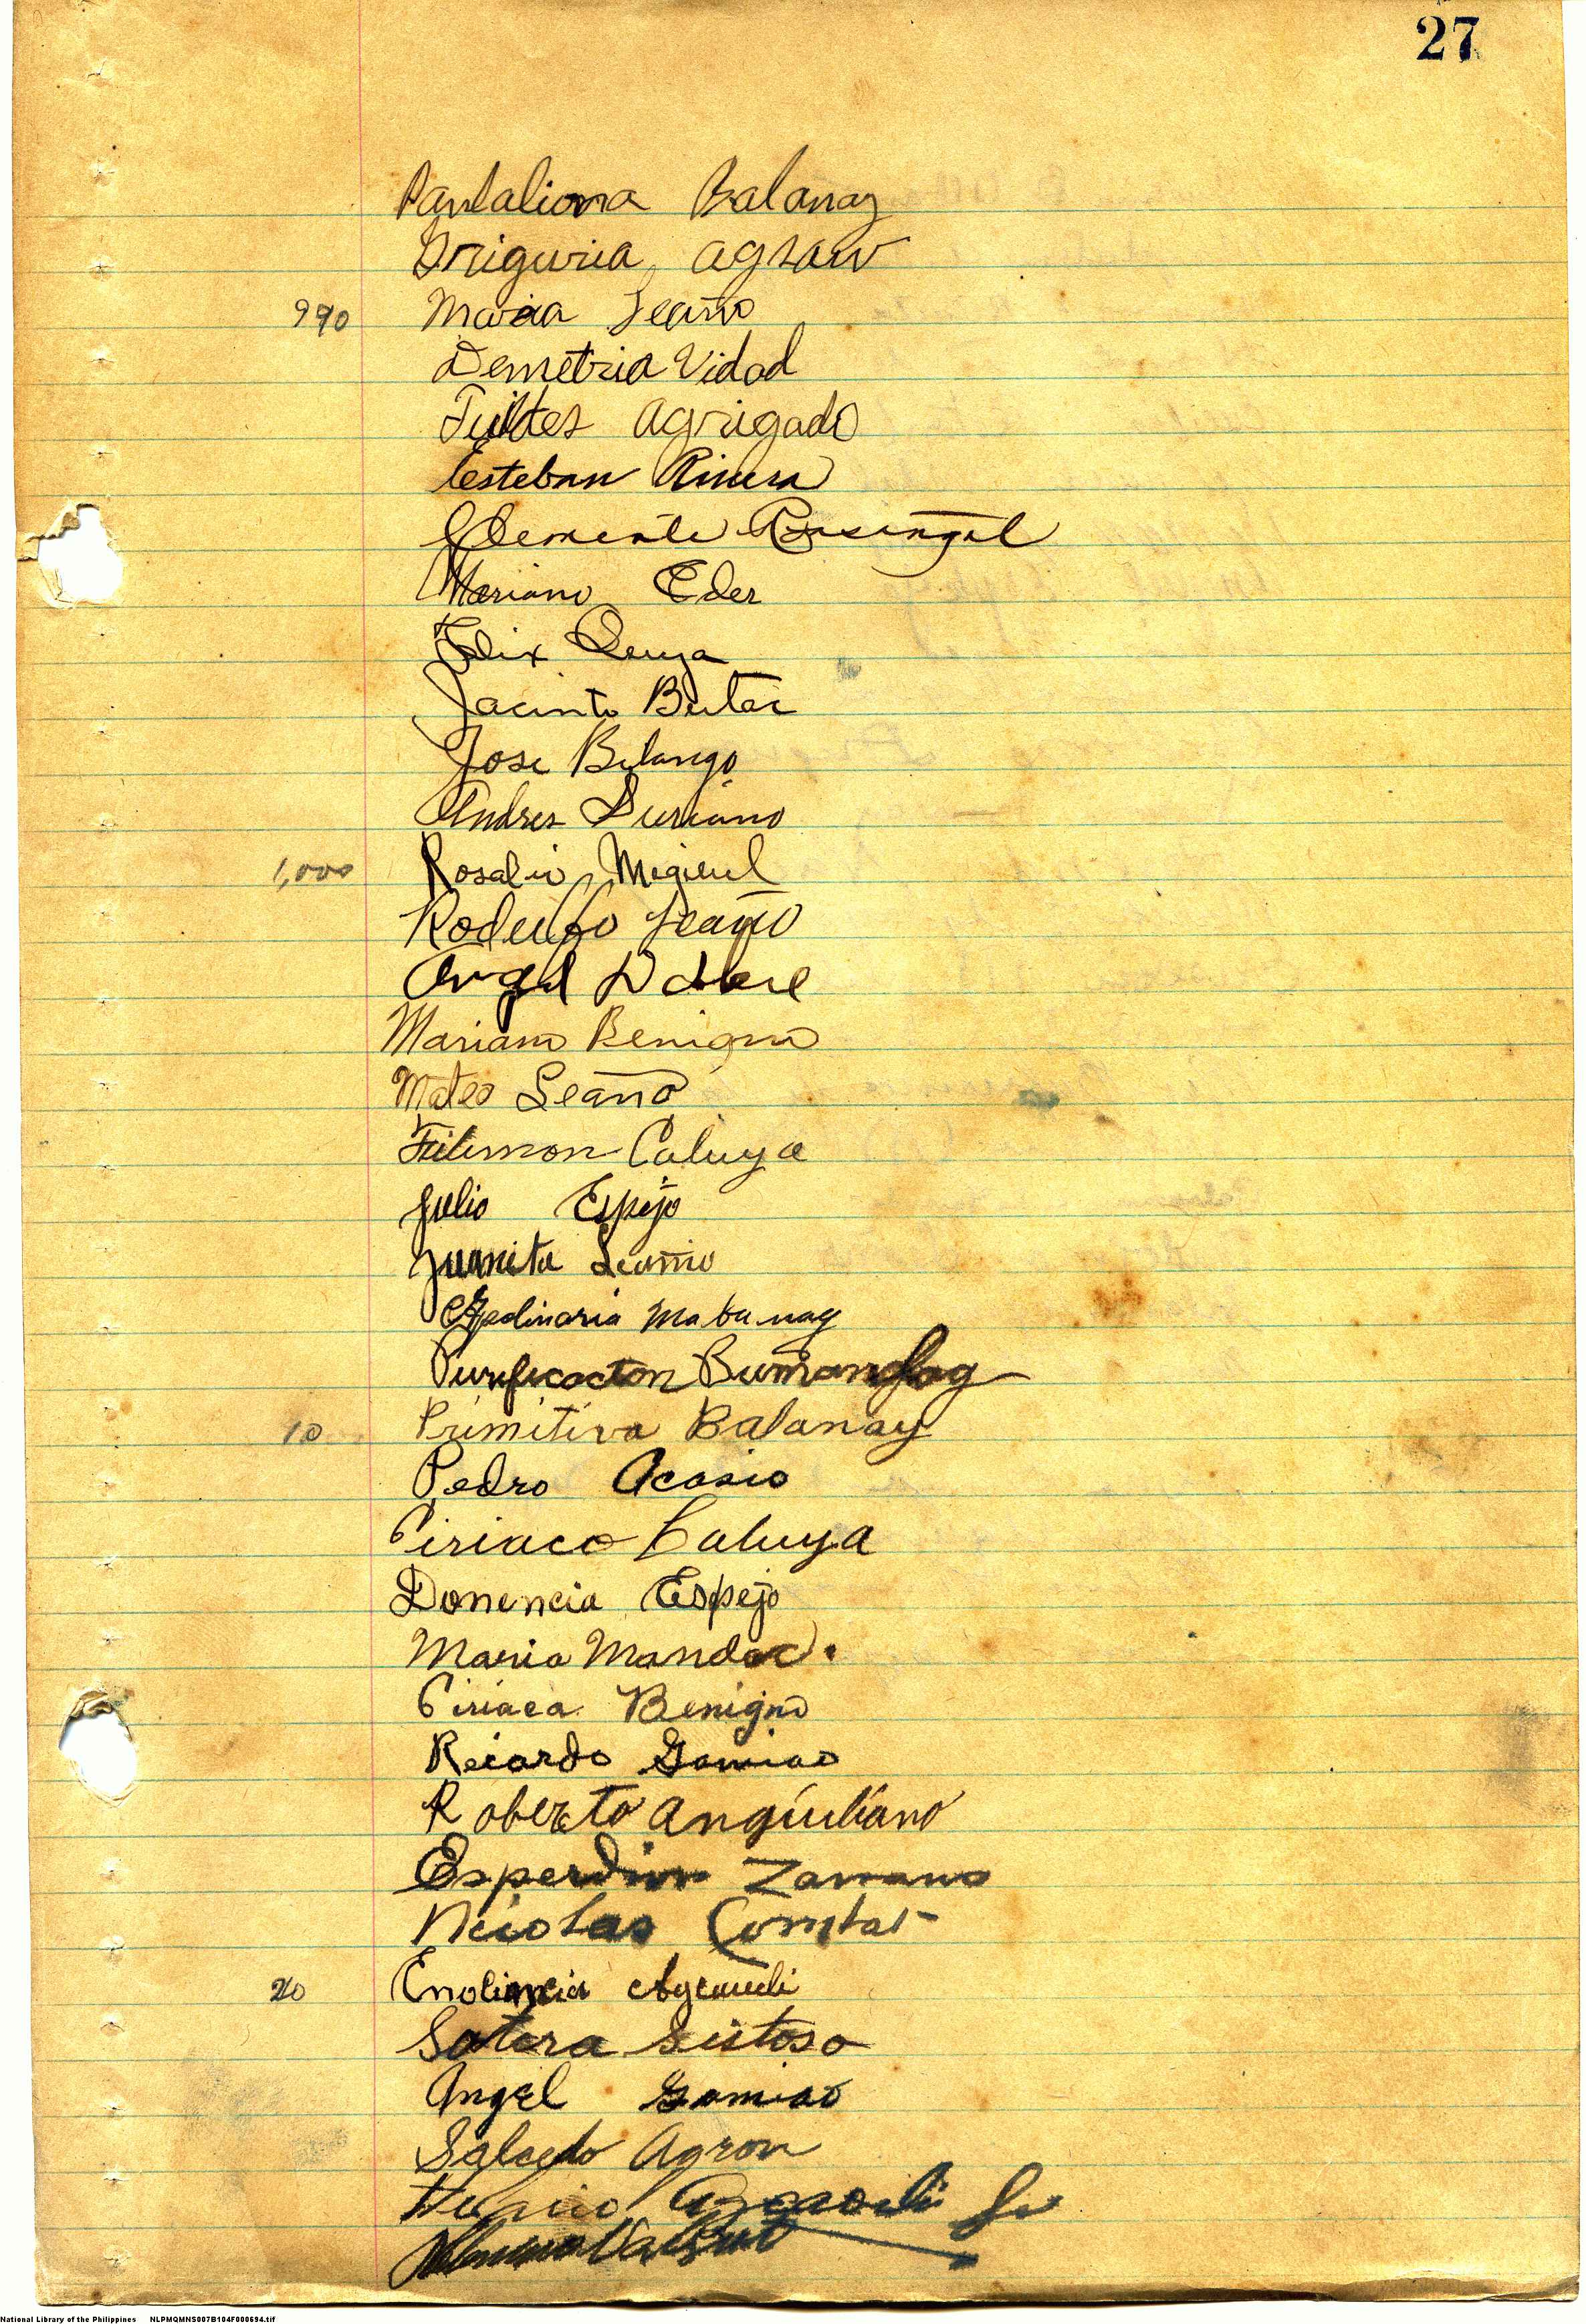 27
Pantaliona Balanay
Griguria Agsaw
990 Maria Leaño
Demetria Vidad
Agrigado
Esteban Rivera
Clemente
Mariano Eder
Felix
Jacinto Butac
Jose Bulango
Andres Duriano
1,000 Rosalio Migiuel
Rodulfo Leaño
Angel
Mariano Benigno
Mateo Leaño
Filimon Caluya
Julio Espejo
Juanita Leaño
Apolinaria Mabunay
Purificacion Bumanglag
10 Primitiva Balanay
Pedro Acosio
Ciriaco Caluya
Donencia Espejo
Maria Mandac.
Ciriaca Benigno
Recardo Gamiao
Roberto Anguiliano
Zamano
Nicolas
20
Sotera Sistoso
Angel Gamiao
Salcedo Agron
National Library of the Philippines NLPMQMNS007B104F000694.tif